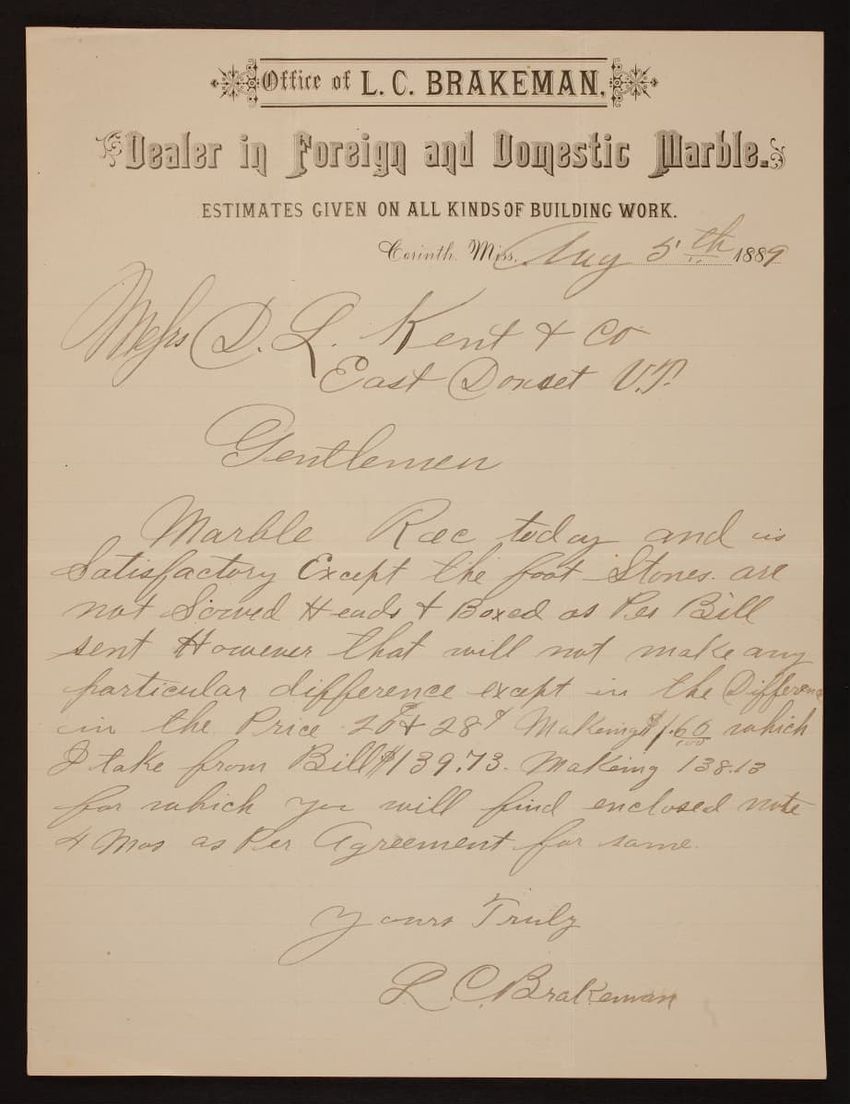 Office of L. C. BRAKEMAN,
Dealer in Foreign and Domestic Marble.
ESTIMATES GIVEN ON ALL KINDS OF BUILDING WORK.
Corinth, Miss, Aug 5th 1889
Messrs D. L. Kent & Co
East Dorset V.T.
Gentlemen
Marble Rec today and is
Satisfactory Except the foot Stones. are
not Sowed Heads & Boxed as Per Bill
sent However that will not make any
particular difference except in the Difference
in the Price 20 & 28¢ Makeing $1.60/100 which
I take from Bill $139.73. Makeing 138.13
for which you will find enclosed note
4 Mos as Per Agreement for same
Yours Truly
L. C. Brakeman